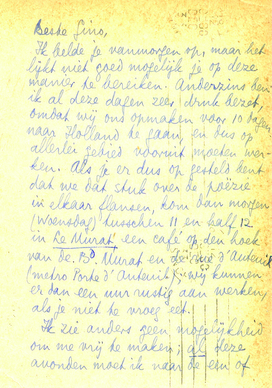 Beste Gino,
Ik belde je vanmorgen op, maar het
lijkt niet goed mogelijk je op deze
manier te bereiken. Anderzins ben
ik al deze dagen zeer druk bezet,
omdat wij ons opmaken voor 10 dagen
naar Holland te gaan, en dus op
allerlei gebied vooruit moeten wer-
ken. Als je er dus op gesteld bent
dat we dat stuk over de poëzie
in elkaar flansen, kom dan morgen
(Woensdag) tusschen 11 en half 12
in Le Murat, een café op den hoek
van de Bd Murat en de rue d'Auteuil
(metro Porte d'Auteuil); wij kunnen
er dan een uur rustig aan werken,
als je niet te vroeg eet.
Ik zie anders geen mogelijkheid
om me vrij te maken; al deze
avonden moet ik naar de een of